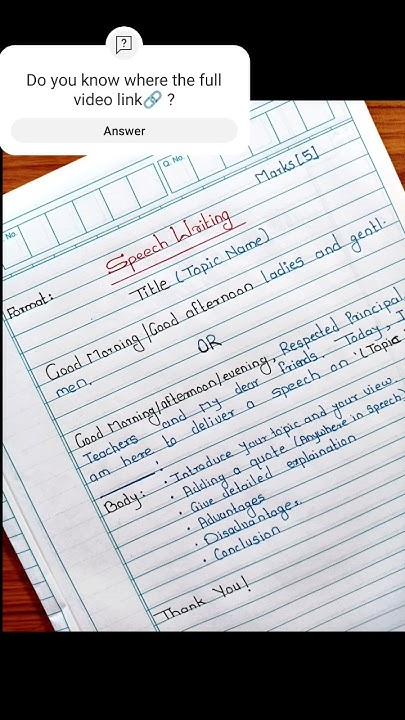 Do you know where the full
video link🔗 ?
Answer
No.
Q. No.
Marks [5]
Speech Writing
Format:
Title (Topic Name)
Good Morning/Good afternoon ladies and gentl-
men.
OR
Good Morning/afternoon/evening, Respected Principal
Teachers and My dear Friends. Today, I
am here to deliver a speech on '(Topic
Body: • Introduce your topic and your view.
• Adding a quote (Anywhere in speech)
• Give detailed explaination
• Advantages
• Disadvantages
• Conclusion
Thank You!